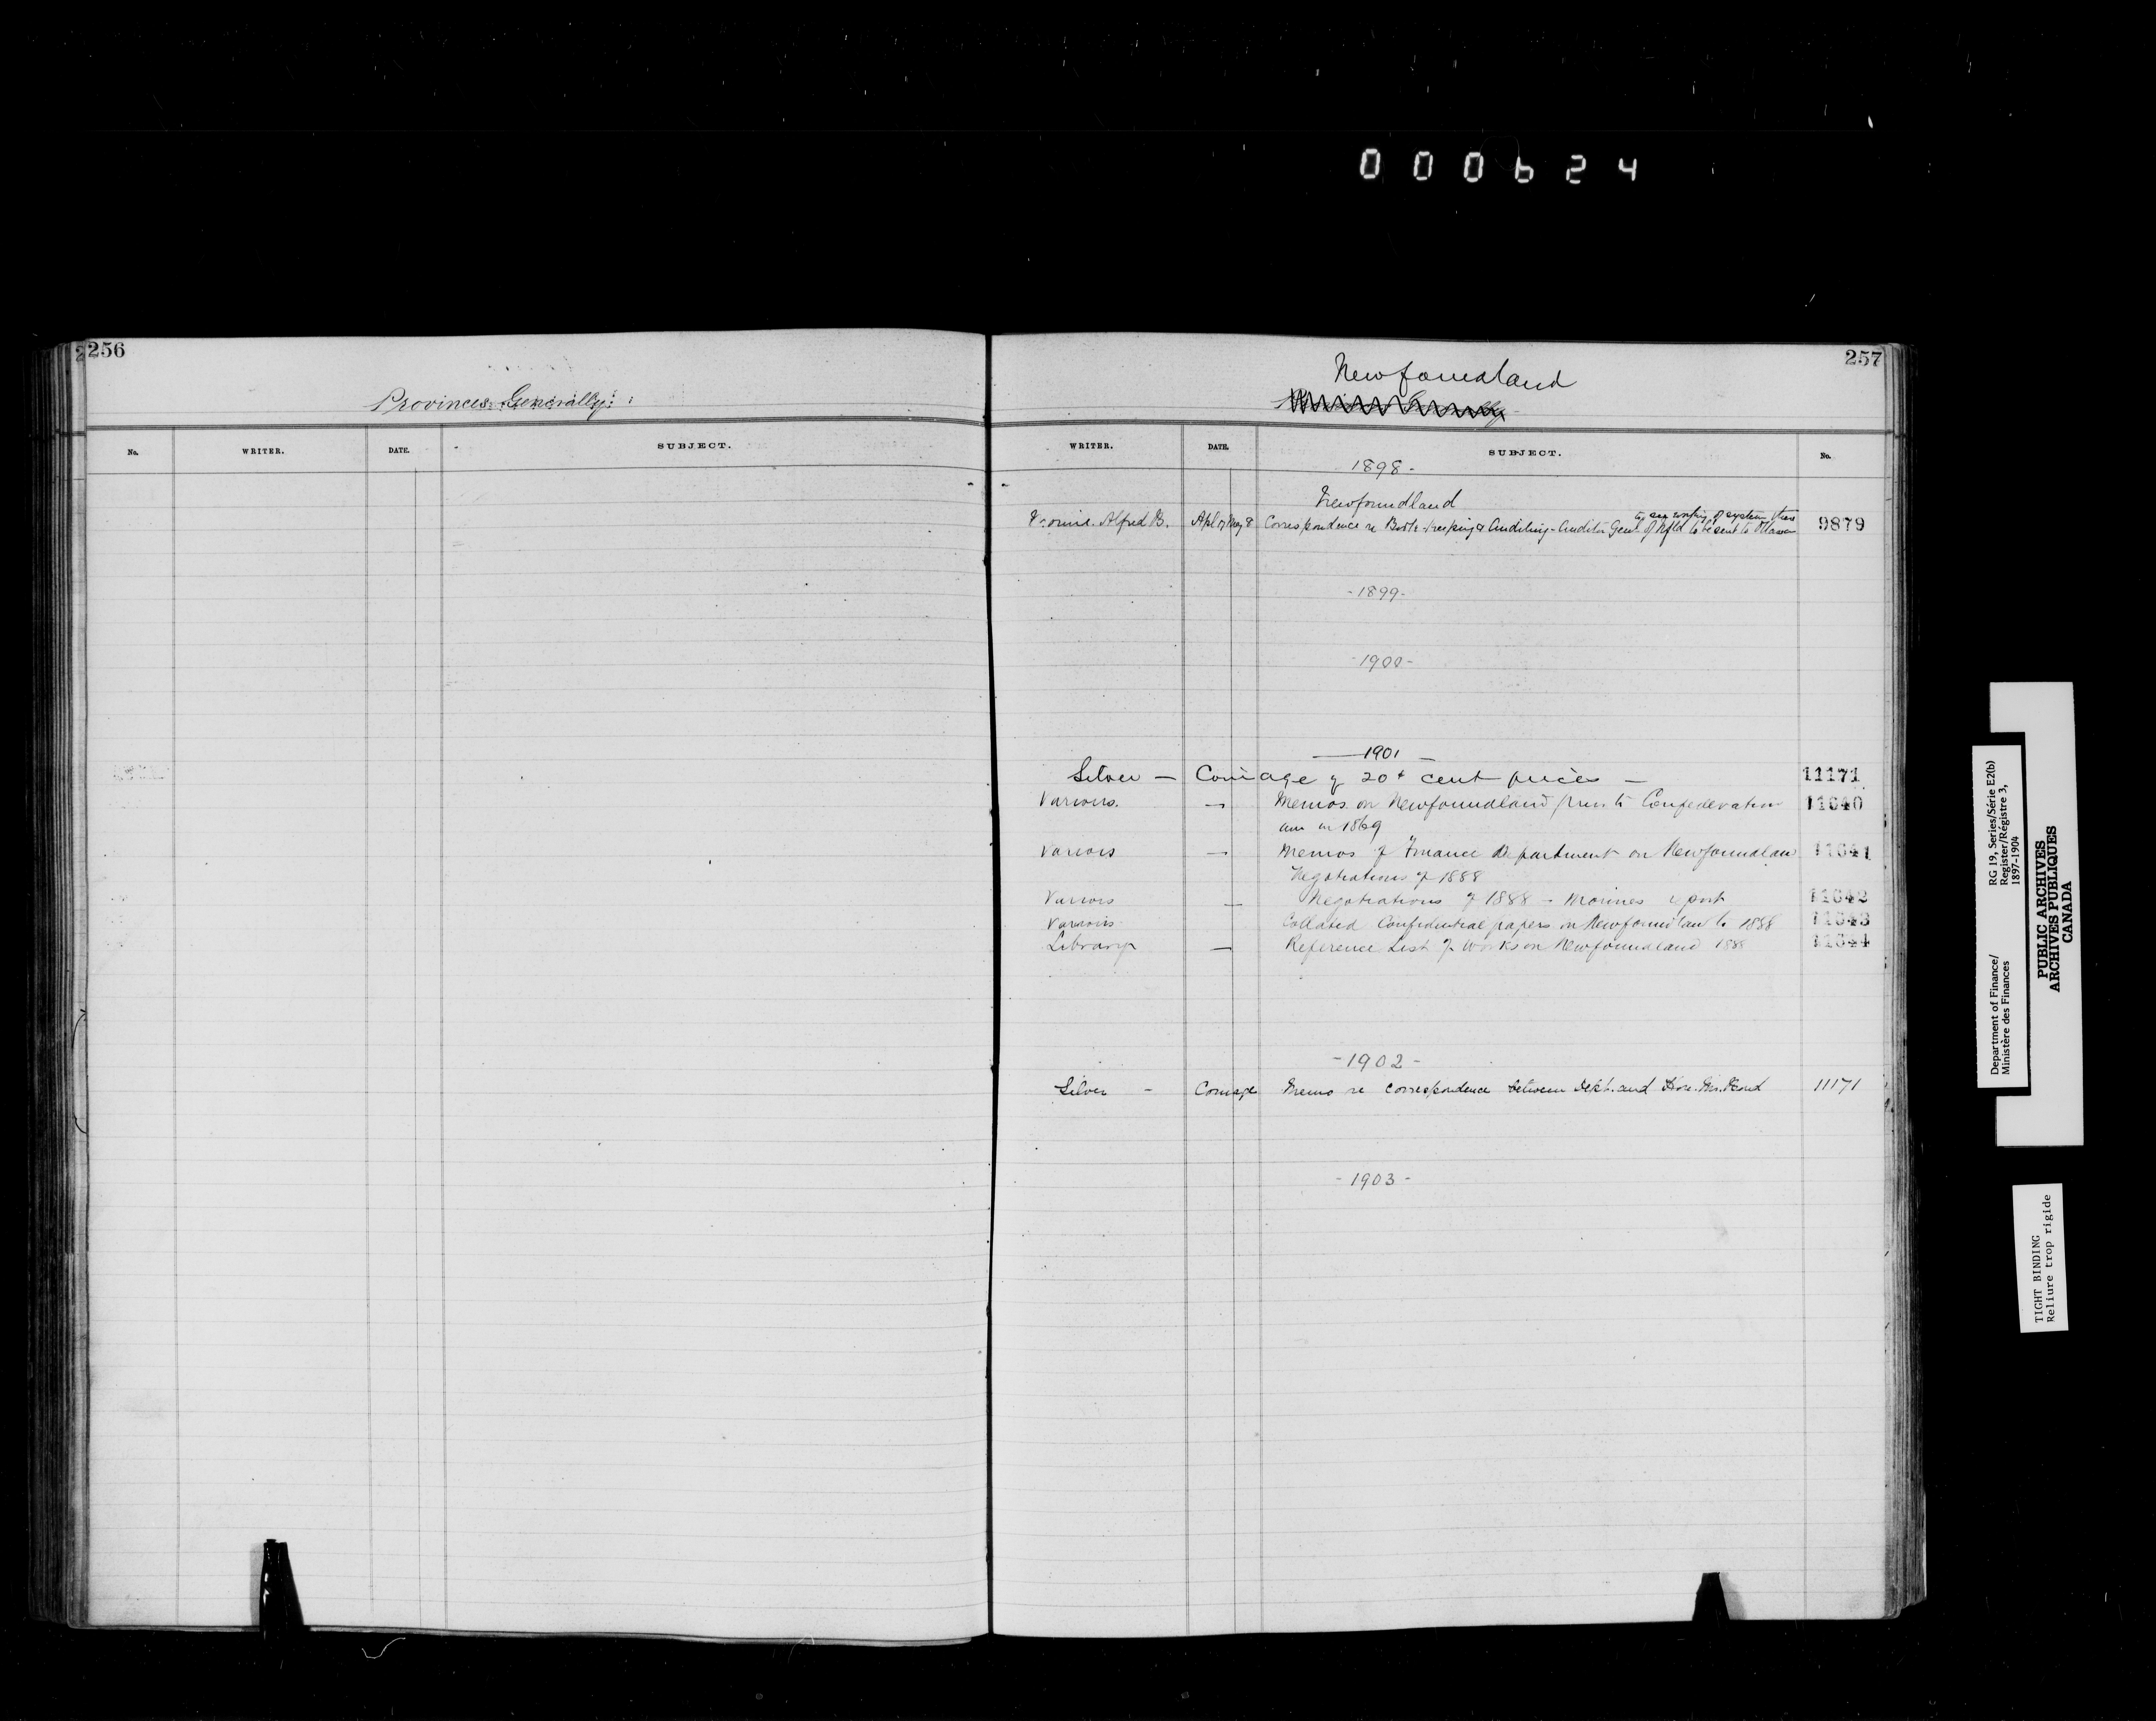 000624
256
Provinces Generally
No. WRITER. DATE. SUBJECT.
257
Newfoundland
WRITER. DATE. SUBJECT. No.
1898-
Newfoundland
to see working of system there
Alfred B. Apl 7 May 8 Correspondence re Book-keeping & Auditing - Auditor Genl of Nfld to be sent to Ottawa 9879
-1899-
-1900-
-1901-
Silver - Coinage of 20 cent pieces - 11171
Various. - Memos. on Newfoundland prev. to Confederation 11640
in 1869
Various - Memos of Finance Department on Newfoundland 11641
Negotiations of 1888
Various - Negotiations of 1888 - report 11642
Various Collated Confidential papers on Newfoundland to 1888 11643
Library - Reference List of Works on Newfoundland 1888 11644
-1902-
Silver - Coinage Memo re correspondence between Dept. and Hon. Mr. Bond 11171
-1903-
Department of Finance/
Ministère des Finances
RG 19, Series/Série E2(b)
Register/Régistre 3,
1897-1904
PUBLIC ARCHIVES
ARCHIVES PUBLIQUES
CANADA
TIGHT BINDING
Reliure trop rigide